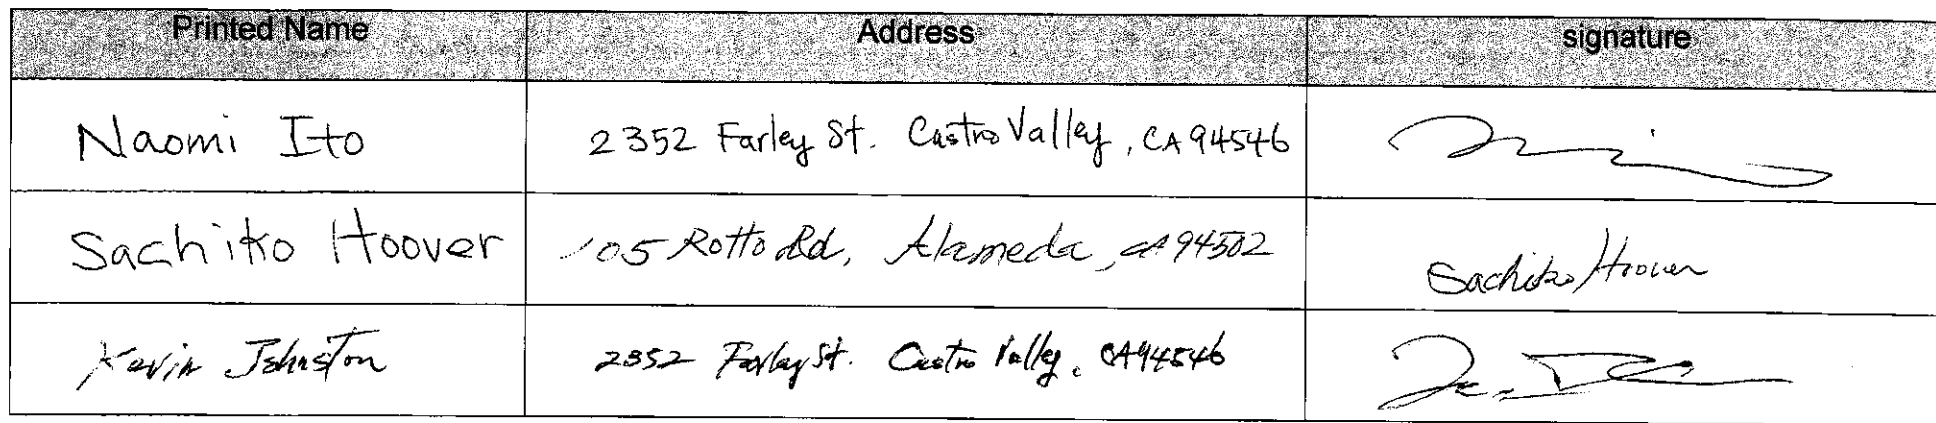 Printed Name Address signature
Naomi Ito 2352 Farley St. Castro Valley, CA 94546
Sachiko Hoover 105 Rotto Rd, Alameda, CA 94502 Sachiko Hoover
Kevin Johnston 2352 Farley St. Castro Valley, CA 94546